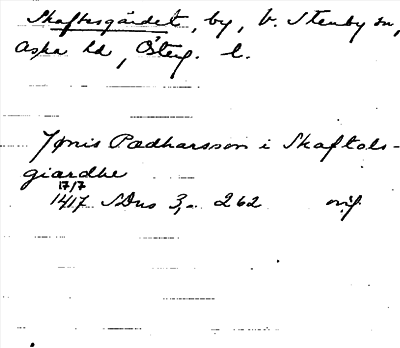 Skaftesgärdet, by, V. Stenby sn,
Aska hd, Österg. l.
Jønis Padharsson i Skaftals-
giardhe
17/7
1417 SDns 3, 262 orig